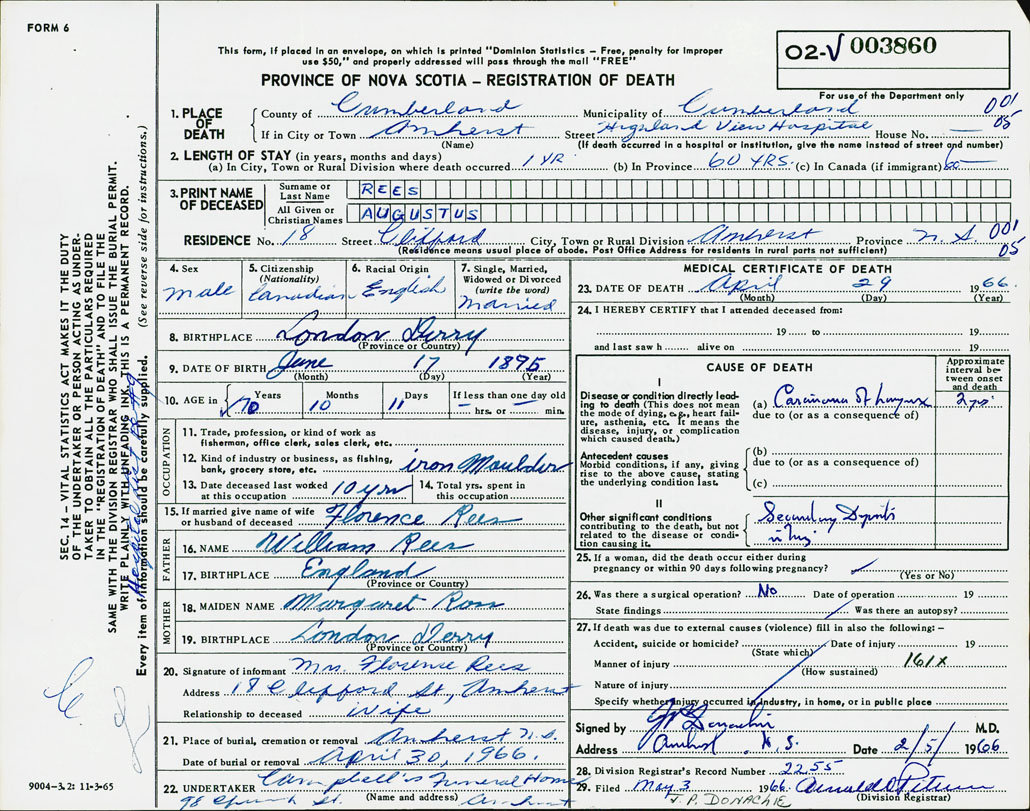 FORM 6
This form, if placed in an envelope, on which is printed "Dominion Statistics – Free, penalty for improper
use $50," and properly addressed will pass through the mail "FREE"
PROVINCE OF NOVA SCOTIA – REGISTRATION OF DEATH
O2-V 003860
For use of the Department only
001
05
1. PLACE OF DEATH
County of Cumberland Municipality of Cumberland
If in City or Town Amherst Street Highland View Hospital House No. —
(Name) (If death occurred in a hospital or institution, give the name instead of street and number)
2. LENGTH OF STAY (in years, months and days)
(a) In City, Town or Rural Division where death occurred 1 YR. (b) In Province 60 YRS. (c) In Canada (if immigrant) 60
3. PRINT NAME OF DECEASED
Surname or Last Name REES
All Given or Christian Names AUGUSTUS
RESIDENCE No. 18 Street Clifford City, Town or Rural Division Amherst Province N.S. 001
05
(Residence means usual place of abode. Post Office Address for residents in rural parts not sufficient)
4. Sex
male
5. Citizenship
(Nationality)
Canadian
6. Racial Origin
English
7. Single, Married,
Widowed or Divorced
(write the word)
Married
8. BIRTHPLACE London Derry
(Province or Country)
9. DATE OF BIRTH June 17 1895
(Month) (Day) (Year)
10. AGE in
Years Months Days If less than one day old
70 10 11 — hrs. or — min.
OCCUPATION
11. Trade, profession, or kind of work as
fisherman, office clerk, sales clerk, etc.
12. Kind of industry or business, as fishing,
bank, grocery store, etc. iron Moulder
13. Date deceased last worked
at this occupation 10 yrs
14. Total yrs. spent in
this occupation
15. If married give name of wife
or husband of deceased Florence Rees
FATHER
16. NAME William Rees
17. BIRTHPLACE England
(Province or Country)
MOTHER
18. MAIDEN NAME Margaret Ross
19. BIRTHPLACE London Derry
(Province or Country)
20. Signature of informant Mrs. Florence Rees
Address 18 Clifford St, Amherst
Relationship to deceased Wife
21. Place of burial, cremation or removal Amherst N.S.
Date of burial or removal April 30, 1966.
22. UNDERTAKER Campbell's Funeral Home
(Name and address)
98 Church St. Amherst
MEDICAL CERTIFICATE OF DEATH
23. DATE OF DEATH April 29 1966.
(Month) (Day) (Year)
24. I HEREBY CERTIFY that I attended deceased from:
19 to 19
and last saw h alive on 19
CAUSE OF DEATH
Approximate
interval be-
tween onset
and death
I
Disease or condition directly lead-
ing to death (This does not mean
the mode of dying, e.g., heart fail-
ure, asthenia, etc. It means the
disease, injury, or complication
which caused death.)
(a) Carcinoma of larynx 2 yrs.
due to (or as a consequence of)
Antecedent causes
Morbid conditions, if any, giving
rise to the above cause, stating
the underlying condition last.
(b)
due to (or as a consequence of)
(c)
II
Other significant conditions
contributing to the death, but not
related to the disease or condit-
ion causing it.
Secondary Deposits
in
25. If a woman, did the death occur either during
pregnancy or within 90 days following pregnancy?
(Yes or No)
26. Was there a surgical operation? No Date of operation 19
State findings Was there an autopsy?
27. If death was due to external causes (violence) fill in also the following: –
Accident, suicide or homicide? Date of injury 19
(State which)
Manner of injury 161X
(How sustained)
Nature of injury
Specify whether injury occurred in industry, in home, or in public place
Signed by J P Donachie M.D.
Address Amherst, N.S. Date 2/5/1966
28. Division Registrar's Record Number 2255
29. Filed May 3 1966.
(Division Registrar)
J. P. DONACHIE
SEC. 14 – VITAL STATISTICS ACT MAKES IT THE DUTY
OF THE UNDERTAKER OR PERSON ACTING AS UNDER-
TAKER TO OBTAIN ALL THE PARTICULARS REQUIRED
IN THE "REGISTRATION OF DEATH" AND TO FILE THE
SAME WITH THE DIVISION REGISTRAR WHO SHALL ISSUE THE BURIAL PERMIT.
WRITE PLAINLY WITH UNFADING INK. THIS IS A PERMANENT RECORD.
Every item of information should be carefully supplied. (See reverse side for instructions.)
9004-3.2: 11-3-65